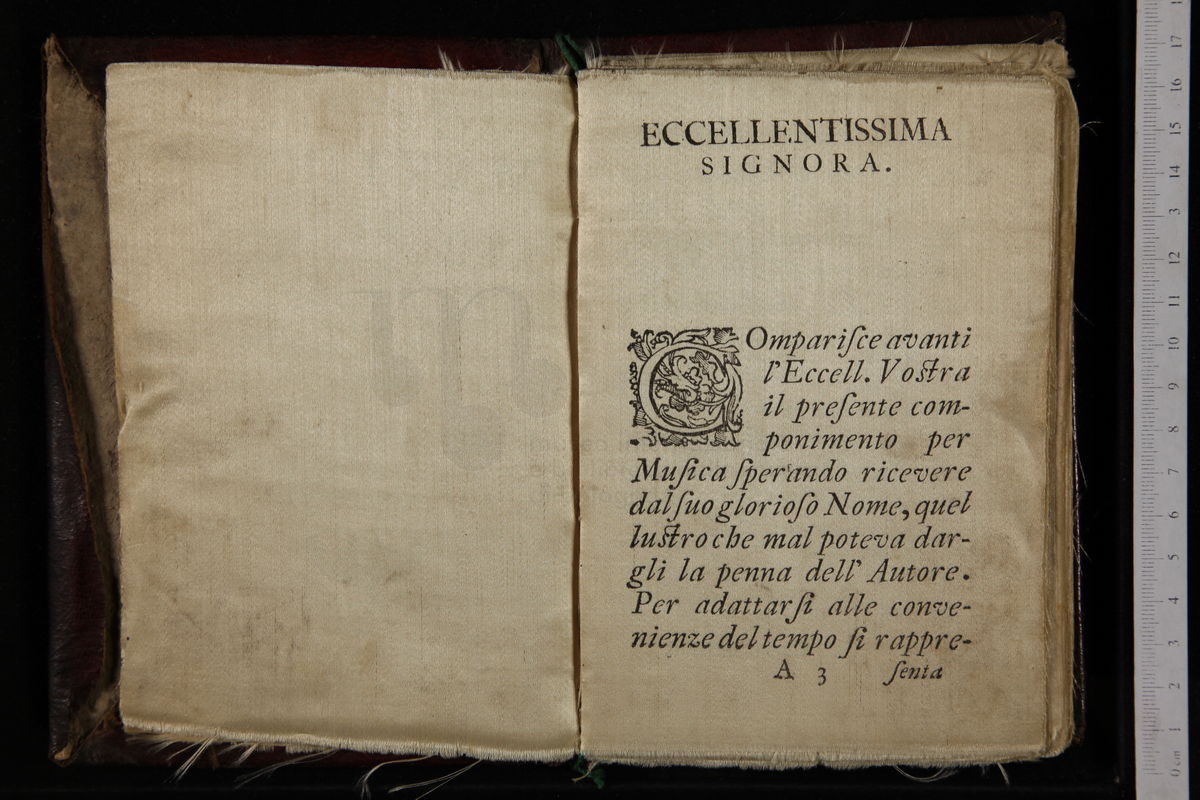 ECCELLENTISSIMA
SIGNORA.
Compariſce avanti
l'Eccell. Vostra
il preſente com-
ponimento per
Muſica ſperando ricevere
dal ſuo glorioſo Nome, quel
lustro che mal poteva dar-
gli la penna dell' Autore.
Per adattarſi alle conve-
nienze del tempo ſi rappre-
A 3 ſenta
17
16
15
14
3
12
11
10
9
8
7
6
5
4
3
2
1
0 cm